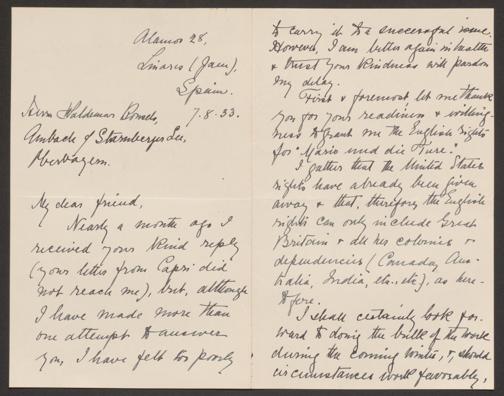 Alamos 28,
Linares (Jaen),
Spain.
7.8.33.
Herrn Waldemar Bonsels,
Ambach / Starnberger See,
Oberbayern.
My dear friend,
Nearly a month ago I
received your kind reply
(your letter from Capri did
not reach me), but, although
I have made more than
one attempt to answer
you, I have felt too poorly
to carry it to a successful issue.
However, I am better again in health
& trust your kindness will pardon
my delay.
First & foremost, let me thank
you for your readiness & willing-
ness to grant me the English rights
for "Mario und die Tiere."
I gather that the United States
rights have already been given
away & that, therefore, the English
rights can only include Great
Britain & all her colonies &
dependencies (Canada, Aus-
tralia, India, etc., etc.), as here-
tofore.
I shall certainly look for-
ward to doing the bulk of the work
during the coming winter, &, should
circumstances work favorably,